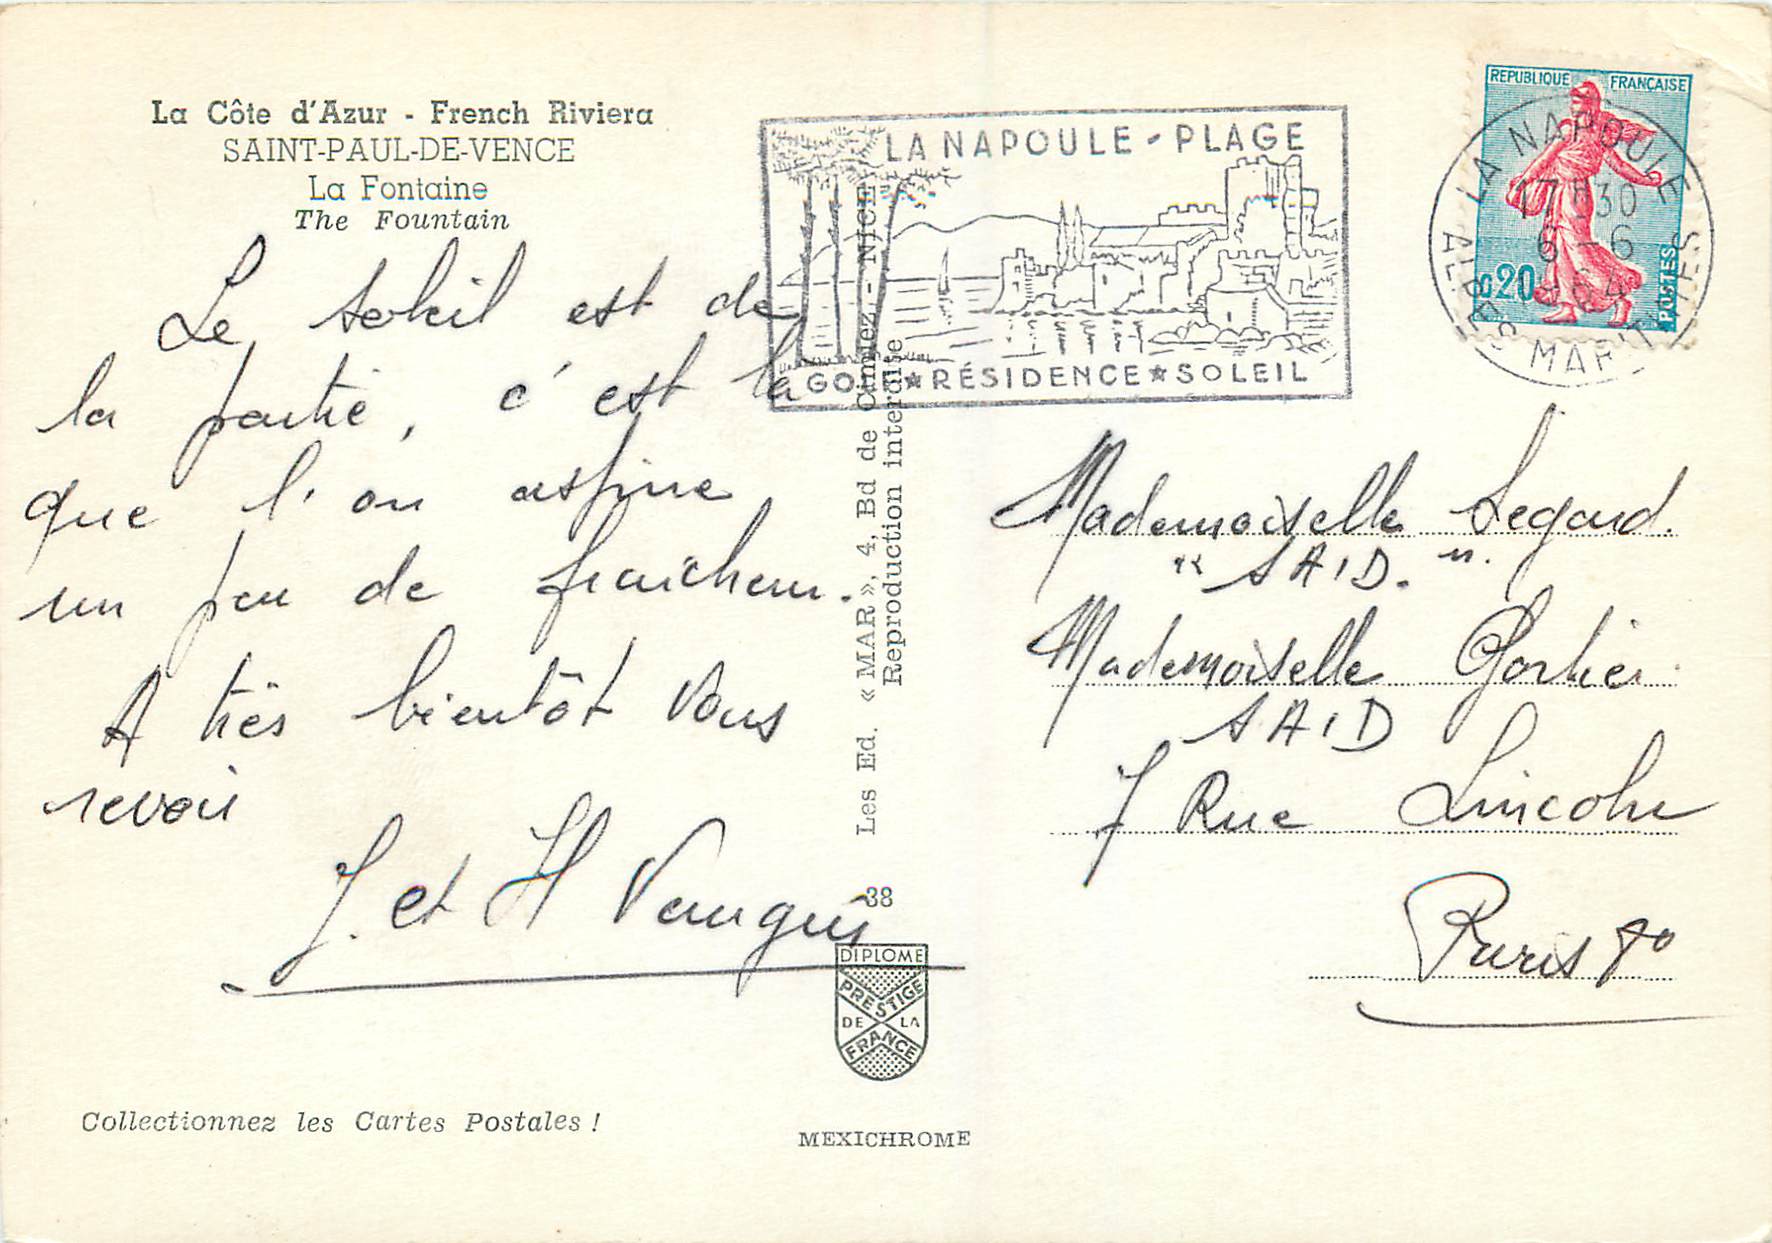 La Côte d'Azur - French Riviera
SAINT-PAUL-DE-VENCE
La Fontaine
The Fountain
Le soleil est de
la partie, c'est la
que l'on aspire
un peu de fraicheur.
A très bientôt vous
revoir
J. et H
Collectionnez les Cartes Postales !
Les Ed. « MAR », 4, Bd de Cimiez - NICE
Reproduction interdite
38
DIPLOME
PRESTIGE
DE LA
FRANCE
MEXICHROME
LA NAPOULE - PLAGE
GOLF ★ RÉSIDENCE ★ SOLEIL
REPUBLIQUE FRANÇAISE
0,20
POSTES
LA NAPOULE
17H30
6-6
1964
ALPES MARITIMES
Mademoiselle Legard.
"SAID."
Mademoiselle Gortier
SAID
7 Rue Lincoln
Paris 8°